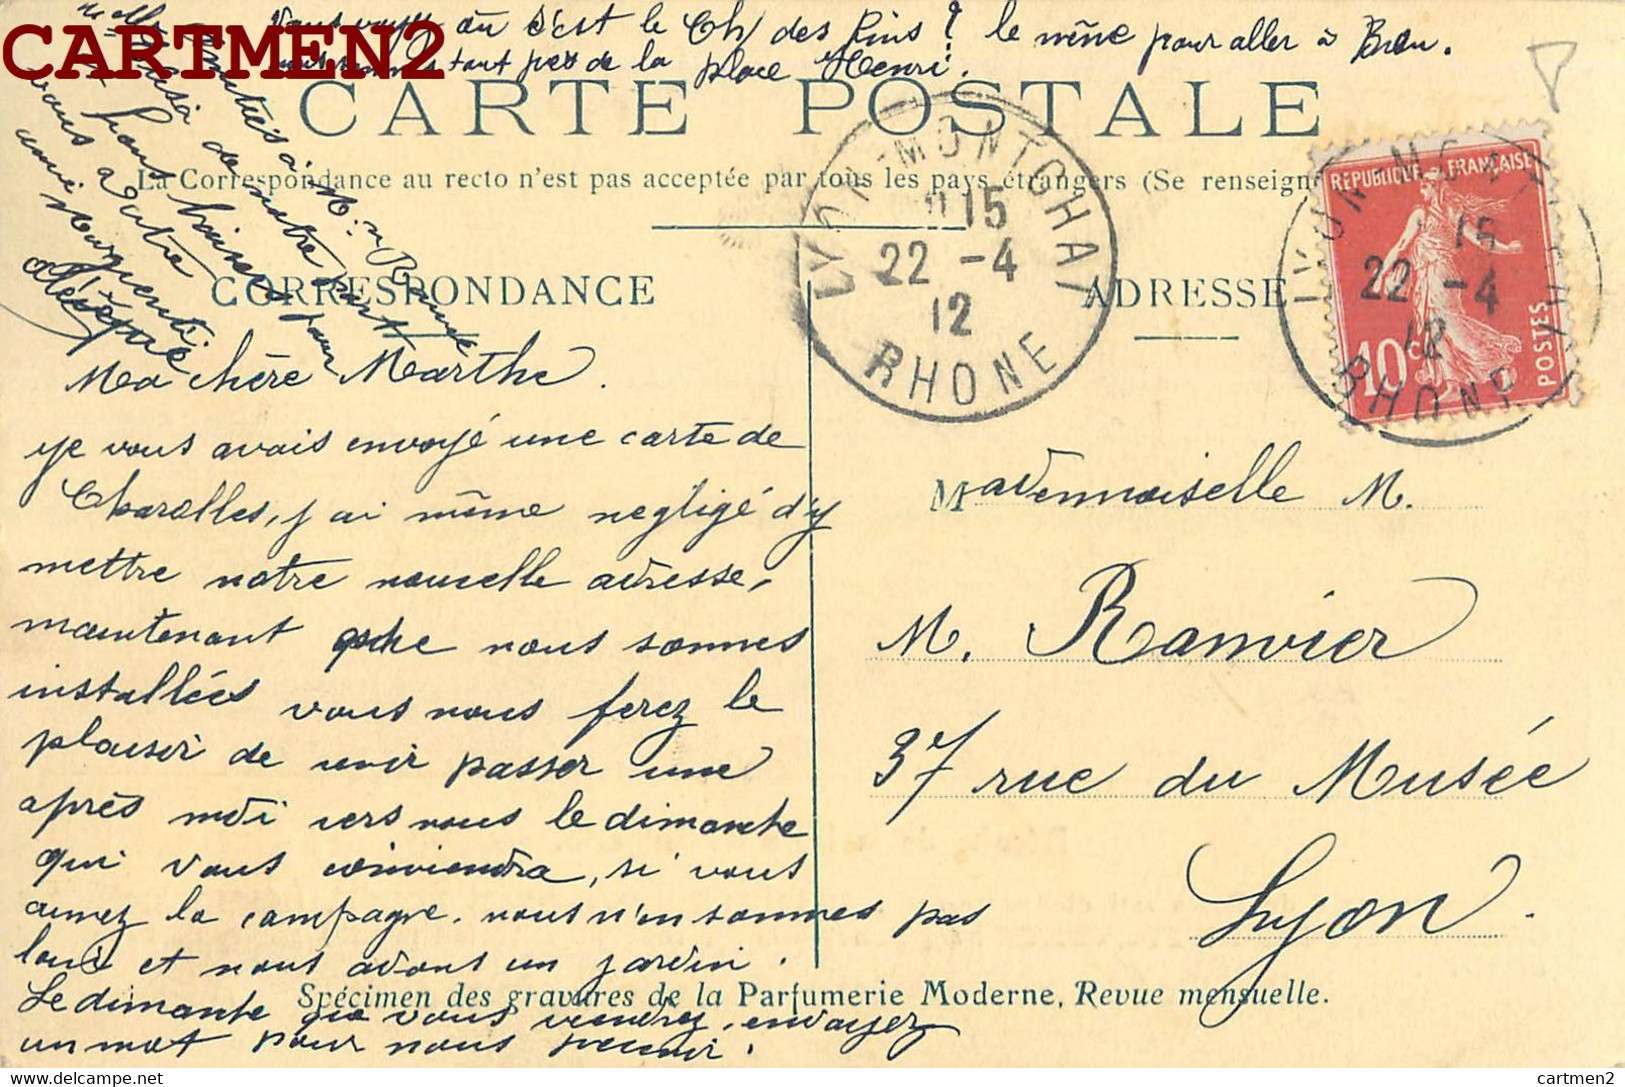 CARTMEN2
Vous voyez où c'est le Ch des Pins ? le même pour aller à Bron.
nous sommes tout près de la place Henri.
CARTE POSTALE
La Correspondance au recto n'est pas acceptée par tous les pays étrangers (Se renseign
CORRESPONDANCE
ADRESSE
LYON-MONTCHAT
15
22 -4
12
RHONE
LYON-MONTCHAT
15
22 -4
12
RHONE
REPUBLIQUE FRANÇAISE
10 c
POSTES
amitiés à M.
de notre part
bons baisers pour
vous à votre
amie Marguerite
Ma chère Marthe.
Je vous avais envoyé une carte de
Charolles, j'ai même negligé d'y
mettre notre nouvelle adresse,
maintenant que nous sommes
installées vous nous ferez le
plaisir de venir passer une
après midi vers nous le dimanche
qui vous conviendra, si vous
aimez la campagne. nous n'en sommes pas
loin et nous avons un jardin.
Le dimanche que vous viendrez, envoyez
un mot pour nous prévenir.
Mademoiselle M.
M. Ranvier
37 rue du Musée
Lyon.
Spécimen des gravures de la Parfumerie Moderne, Revue mensuelle.
delcampe.net
cartmen2